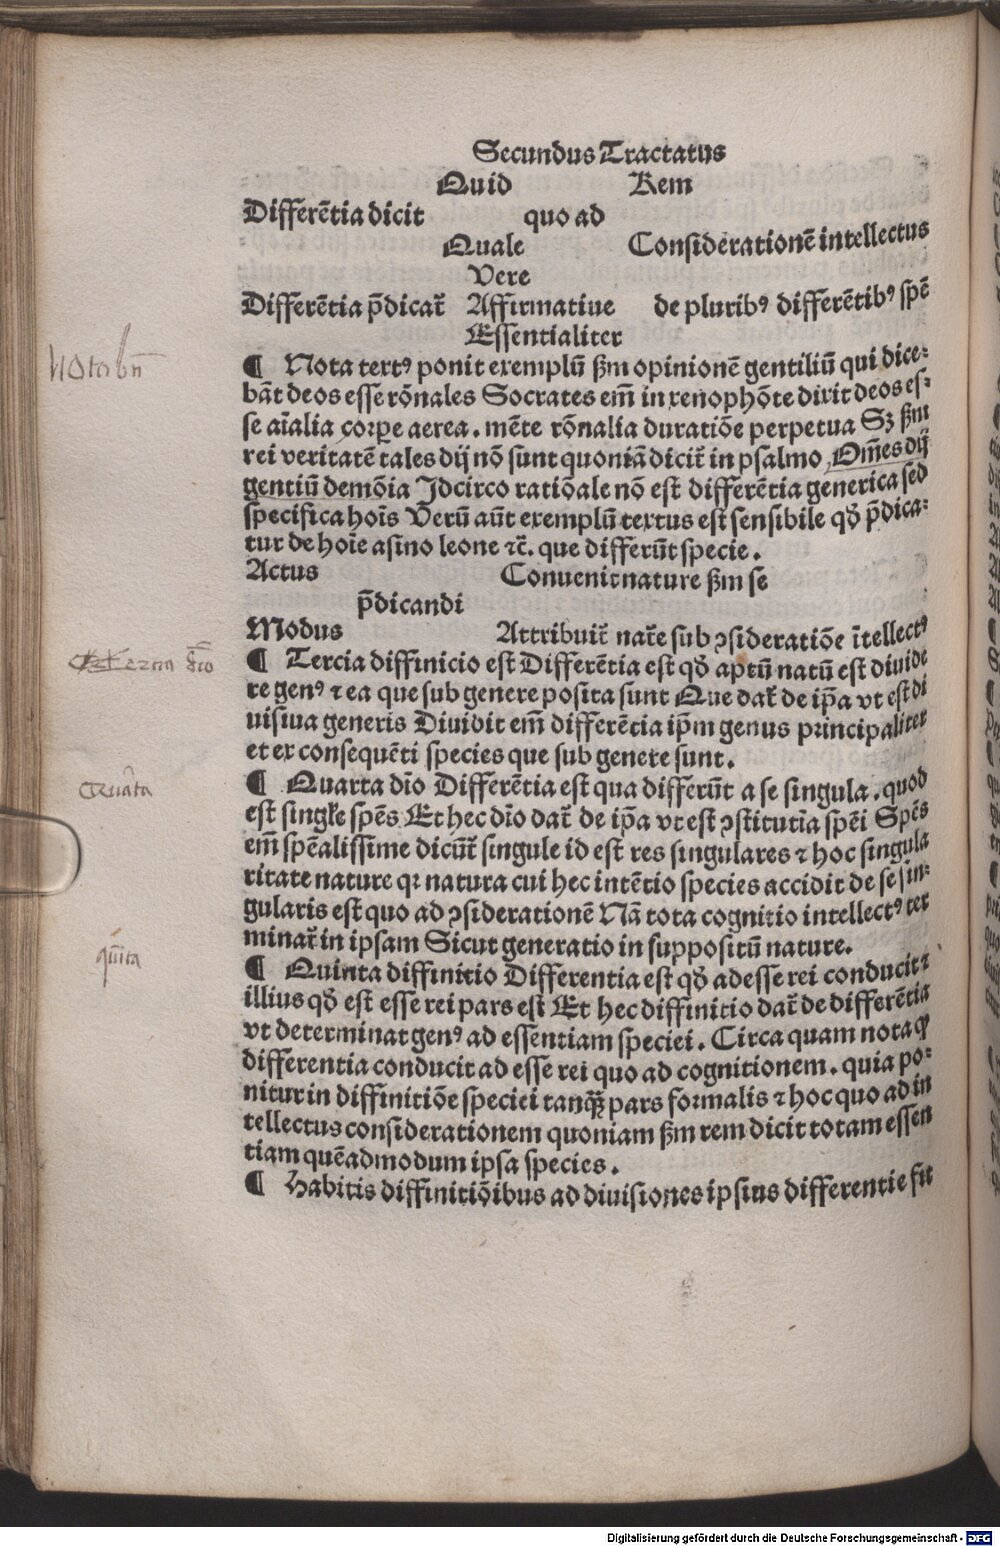 Secundus Tractatus
Quid Rem
Differētia dicit quo ad
Quale Considerationē intellectus
Vere
Differētia p̄dicat᷑ Affirmatiue de pluribꝰ differētibꝰ spē
Essentialiter
¶ Nota textꝰ ponit exemplū ẜm opinionē gentiliū qui dice⸗
bāt deos esse rōnales Socrates em̄ in xenophōte dixit deos es⸗
se aīalia corpe aerea. mēte rōnalia duratiōe perpetua Sꝫ ẜm
rei veritatē tales dij nō sunt quoniā dicit᷑ in psalmo Om̄es dij
gentiū demōia Idcirco ratiōale nō est differētia generica sed
specifica hoīs Verū aūt exemplū textus est sensibile qd̄ p̄dica⸗
tur de hoīe asino leone ⁊c̄. que differūt specie.
Actus Conuenit nature ẜm se
p̄dicandi
Modus Attribuit᷑ nat᷑e sub ꝯsideratiōe ītellectꝰ
¶ Tercia diffinicio est Differētia est qd̄ aptū natū est diuide
re genꝰ ⁊ ea que sub genere posita sunt Que dat᷑ de ip̄a vt est di
uisiua generis Diuidit em̄ differētia ip̄m genus principaliter
et ex consequēti species que sub genere sunt.
¶ Quarta dīo Differētia est qua differūt a se singula. quod
est singl̓e spēs Et hec dīo dat᷑ de ip̄a vt est ꝯstitutīa spēi Spēs
em̄ spēalissime dicūt᷑ singule id est res singulares ⁊ hoc singula
ritate nature qꝛ natura cui hec intētio species accidit de se sin⸗
gularis est quo ad ꝯsiderationē Nā tota cognitio intellectꝰ ter
minat᷑ in ipsam Sicut generatio in suppositū nature.
¶ Quinta diffinitio Differentia est qd̄ ad esse rei conducit ⁊
illius qd̄ est esse rei pars est Et hec diffinitio dat᷑ de differētia
vt determinat genꝰ ad essentiam speciei. Circa quam nota ꝙ
differentia conducit ad esse rei quo ad cognitionem. quia po⸗
nitur in diffinitiōe speciei tanq̄ꝫ pars formalis ⁊ hoc quo ad in
tellectus considerationem quoniam ẜm rem dicit totam essen
tiam quēadmodum ipsa species.
¶ Habitis diffinitiōibus ad diuisiones ipsius differentie sit
Notabn̄
Quarta
qūita
Digitalisierung gefördert durch die Deutsche Forschungsgemeinschaft - DFG